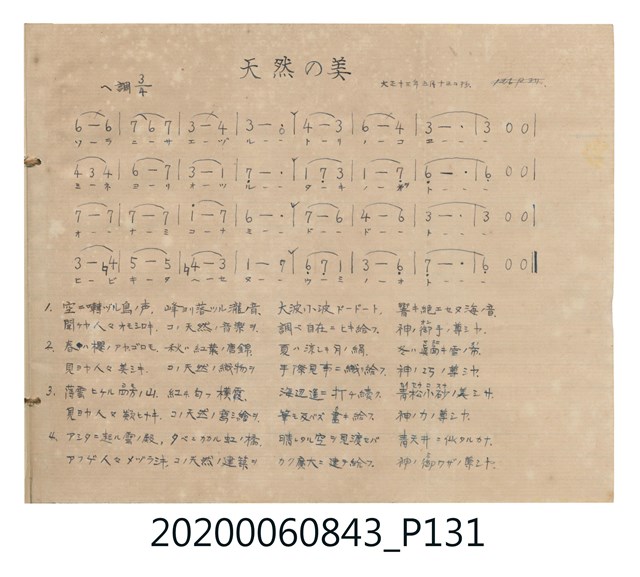 天然の美
ヘ調 3/4
大正十四年
6-6|7 67|3-4|3-・6|4-3|6-4|3-・|3 0 0|
ソーラ ニーサ エーヅ ル-- トーリ ノーコ エ--
4 3 4|6-7|3-1|7-・|1 7 3|1-7|6-・|6 0 0|
ミーネ ヨーリ オーツ ル-- ターキ ノーオ ト--
7-7|7-7|i-7|6-・|7-6|4-6|3-・|3 0 0|
オー ナーミ コーナ ミ-- ドード ドード ト--
3-4|5-5|4-3|1-7|7-1|7-7|6-・|6 0 0|
ヒービ キータ ヘーセ ヌ-- ウーミ ノーオ ト--
1. 空ニ囀ヅル鳥ノ声、峰ヨリ落ツル瀧ノ音、 大波小波ドードート、 響キ絶ニセヌ海ノ音、
聞ケヤ人々オモシロキ、コノ天然ノ音楽ヲ 調ベ自在ニヒキ給フ、 神ノ御手ノ尊ミヤ、
2. 春ハ櫻ノアヤゴロモ、秋ハ紅葉ノ唐錦、 夏ハ涼シキ月ノ絹、 冬ハ真白キ雪ノ布、
見ヨヤ人々美ミキ、コノ天然ノ織物ヲ 手際見事ニ織リ給フ、 神ノ巧ノ尊ミヤ、
3. 薄雲ヒケル四方ノ山、紅ニ匂フ横霞、 海辺遠ニ打チ続ク、 青松白砂ノ美ミサ、
見ヨヤ人々 コノ天然ノ寫シ絵ヲ 筆モ及バズ書キ給フ、 神ノ力ノ尊ミヤ、
4. アシタニ起ル雲ノ殿、夕ベニカカル虹ノ橋、 晴レタル空ヲ見渡セバ 青天井ニ似タルカナ、
アフゲ人々メヅラミキ、コノ天然ノ建築ヲ カク廣大ニ建テ給フ、 神ノ御ワザノ尊ミヤ、
20200060843_P131